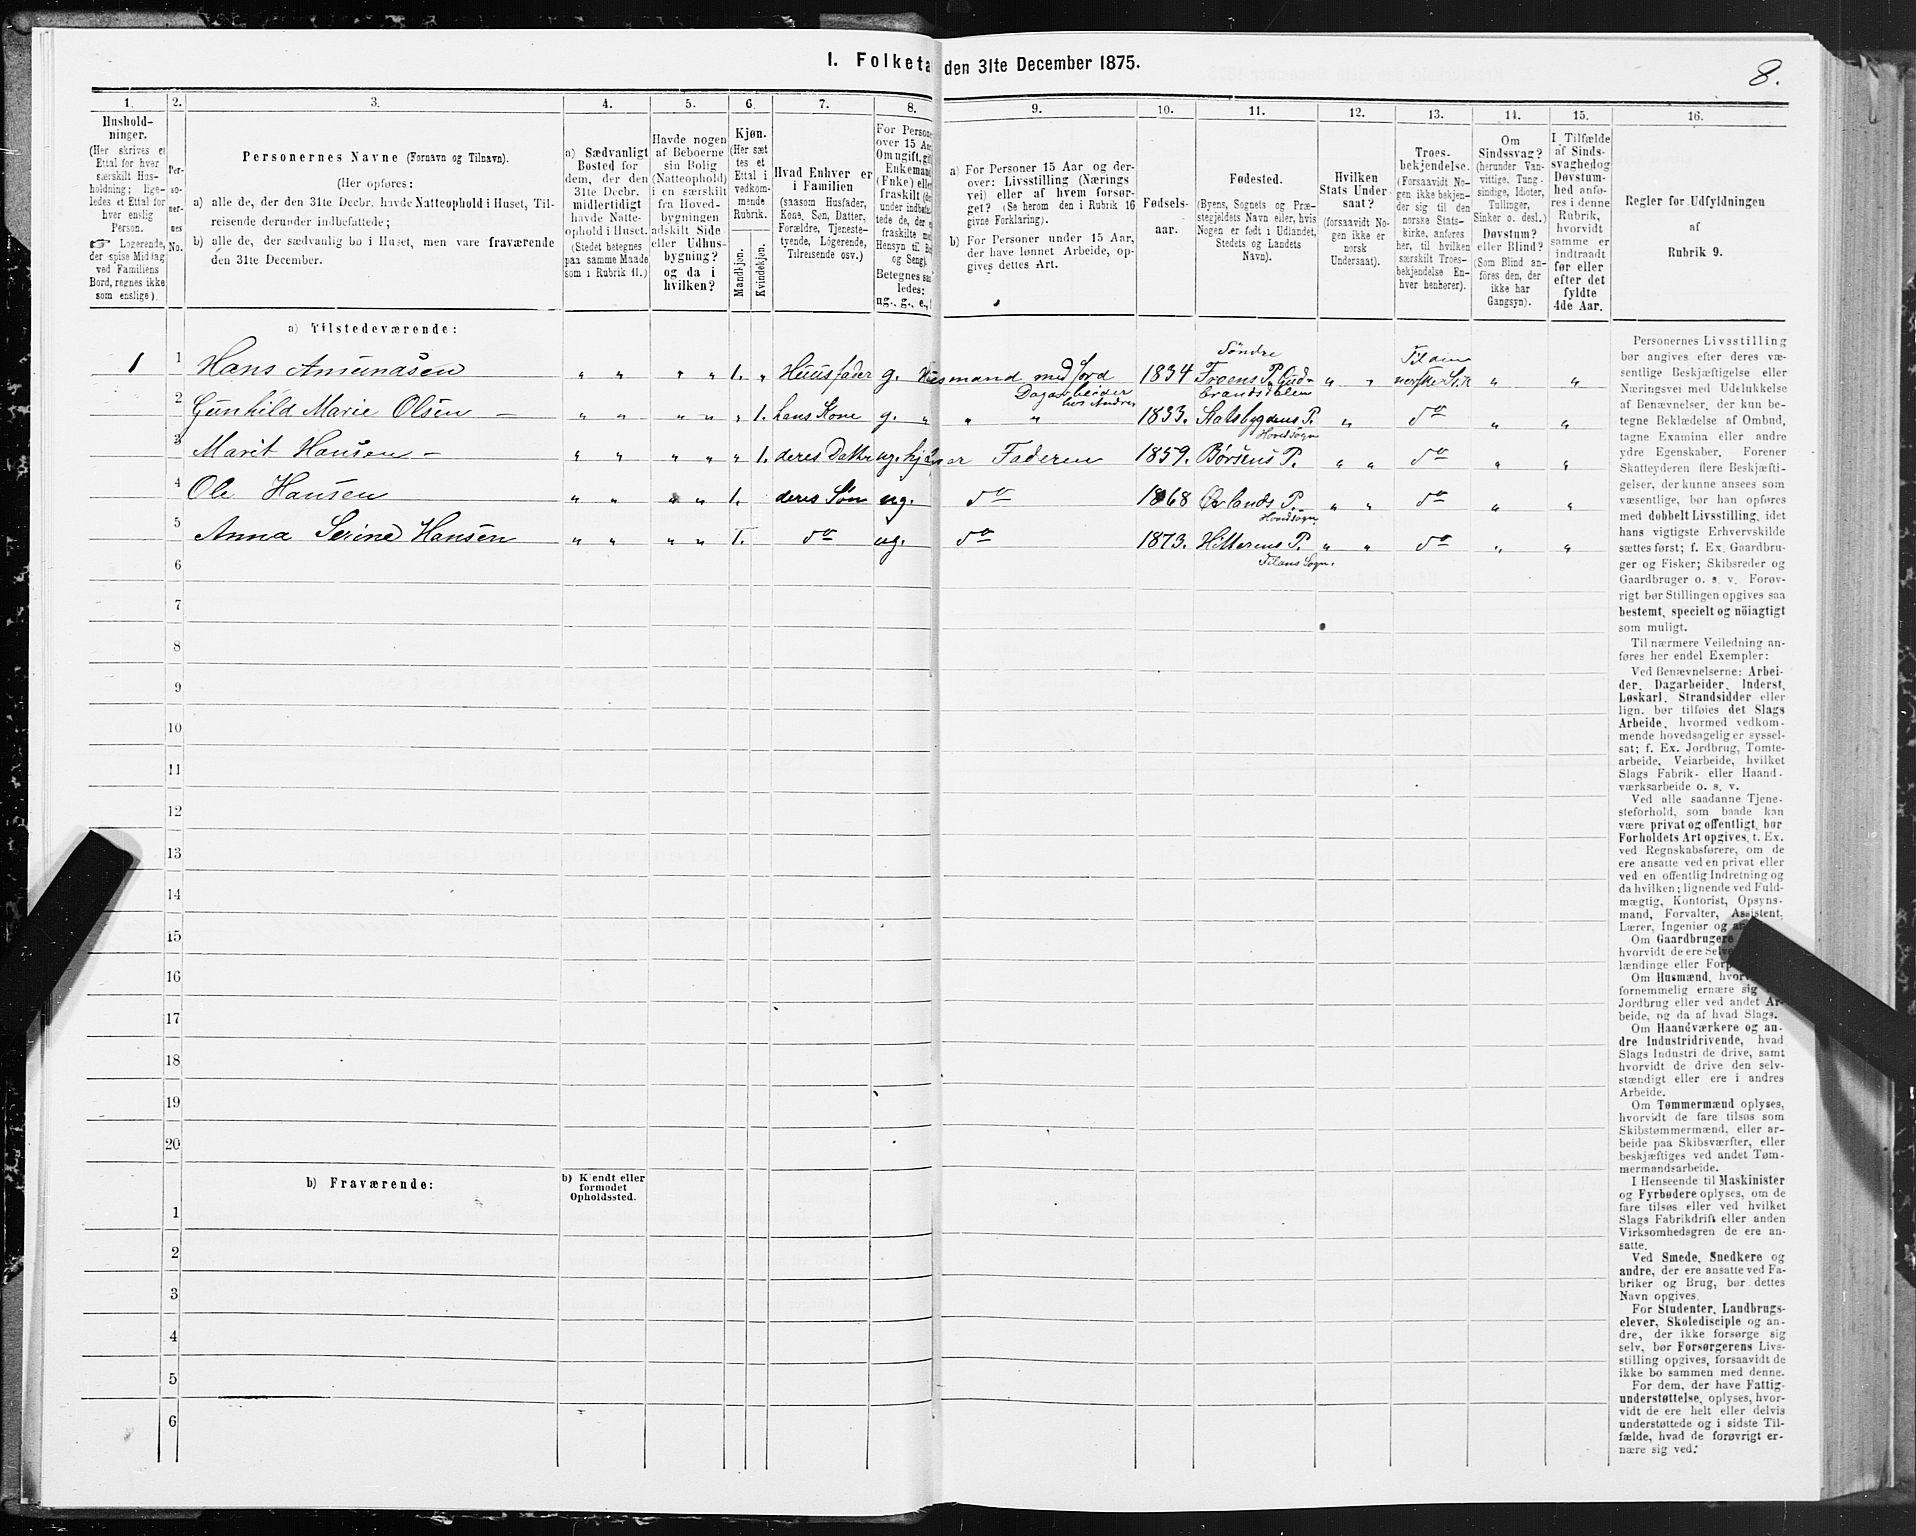 I. Folketa den 31te December 1875.
8.
1. 2. 3. 4. 5. 6. 7. 8. 9. 10. 11. 12. 13. 14. 15. 16.
Hushold-
ninger.
(Her skrives et
Ettal for hver
særskilt Hus-
holdning; lige-
ledes et Ettal for
hver enslig
Person.
☞ Logerende,
der spise Middag
ved Familiens
Bord, regnes ikke
som enslige).
Per-
so-
ner-
nes
No.
Personernes Navne (Fornavn og Tilnavn).
(Her opføres:
a) alle de, der den 31te Decbr. havde Natteophold i Huset, Til-
reisende derunder indbefattede;
b) alle de, der sædvanlig bo i Huset, men vare fraværende
den 31te December.
a) Sædvanligt
Bosted for
dem, der den
31te Decbr.
midlertidigt
havde Natte-
ophold i Huset.
(Stedet betegnes
paa samme Maade
som i Rubrik 11.)
Havde nogen
af Beboerne
sin Bolig
(Natteophold)
i en særskilt
fra Hoved-
bygningen
adskilt Side
eller Udhus-
bygning?
og da i
hvilken?
Kjøn.
(Her sæt
tes et
Ettal i
vedkom-
mende
Rubrik.
Mandkjøn.
Kvindekjøn.
Hvad Enhver er
i Familien
(saasom Husfader,
Kone, Søn, Datter,
Forældre, Tjeneste-
tyende, Logerende,
Tilreisende osv.)
For Person
over 15 Aar
Om ugift, gift
Enkemand
(Enke) elle
fraskilt (de
under indbefat
tede de, der
fraskilte me
Hensyn til Bo
og Seng).
Betegnes saa
ledes:
ug., g., e., f
a) For Personer 15 Aar og der-
over: Livsstilling (Nærings
vei) eller af hvem forsør-
get? (Se herom den i Rubrik 16
givne Forklaring).
b) For Personer under 15 Aar,
der have lønnet Arbeide, op-
gives dettes Art.
Fødsels-
aar.
Fødested.
(Byens, Sognets og Præ-
stegjeldets Navn eller, hvis
Nogen er født i Udlandet,
Stedets og Landets
Navn).
Hvilken
Stats Under
saat?
(forsaavidt No-
gen ikke er
norsk
Undersaat).
Troes-
bekjendelse.
(Forsaavidt No-
gen ikke bekjen-
der sig til den
norske Stats-
kirke, anføres
her, til hvilken
særskilt Troes-
bekjendelse En-
hver henhører).
Om
Sindssvag?
(herunder Van-
vittige, Tung-
sindige, Idioter,
Tullinger,
Sinker o. desl.)
Døvstum?
eller Blind?
(Som Blind an-
føres den, der
ikke har
Gangsyn).
I Tilfælde
af Sinds-
svaghed og
Døvstum-
hed anfø-
res i denne
Rubrik,
hvorvidt
samme er
indtraadt
før eller
efter det
fyldte
4de Aar.
Regler for Udfyldningen
af
Rubrik 9.
a) Tilstedeværende:
1 1 Hans Amundsen „ „ „ „ 1. „ Huusfader g. Husmand med Jord Dagarbeider hos Andre 1834 Søndre Froens P. Gud-brandsdalen „ „ Til den norske Stk „ „
2 Gunhild Marie Olsen – „ „ „ „ „ 1. hans Kone g. „ „ „ 1833. Statsbygdens P. Hovedsogn „ do „ „
3 Marit Hansen – „ „ „ „ „ 1. deres Datter ug. hjælper Faderen 1859. Børsens P. „ „ do „ „
4 Ole Hansen „ „ „ „ 1. deres Søn ug. do 1868 Ørlands P. Hovedsogn „ „ do „ „
5 Anna Serine Hansen „ „ „ „ 1. do ug. do 1873. Hitterens P. Filans Sogn. „ „ do „ „
6
7
8
9
10
11
12
13
14
15
16
17
18
19
20
b) Fraværende:
b) Kjendt eller
formodet
Opholdssted.
1
2
3
4
5
6
Personernes Livsstilling
bør angives efter deres væ-
sentlige Beskjæftigelse eller
Næringsvei med Udelukkelse
af Benævnelser, der kun be-
tegne Beklædelse af Ombud,
tagne Examina eller andre
ydre Egenskaber. Forener
Skatteyderen flere Beskjæfti-
gelser, der kunne ansees som
væsentlige, bør han opføres
med dobbelt Livsstilling, idet
hans vigtigste Erhvervskilde
sættes først; f. Ex. Gaardbru-
ger og Fisker; Skibsreder og
Gaardbruger o. s. v. Forøv-
rigt bør Stillingen opgives saa
bestemt, specielt og nöiagtigt
som muligt.
Til nærmere Veiledning an-
føres her endel Exempler:
Ved Benævnelserne: Arbei-
der, Dagarbeider, Inderst,
Løskarl, Strandsidder eller
lign. bør tilføies det Slags
Arbeide, hvormed vedkom-
mende hovedsagelig er syssel-
sat; f. Ex. Jordbrug, Tomte-
arbeide, Veiarbeide, hvilket
Slags Fabrik- eller Haand-
værksarbeide o. s. v.
Ved alle saadanne Tjene-
steforhold, som baade kan
være privat og offentligt, bør
Forholdets Art opgives, t. Ex.
ved Regnskabsførere, om de
ere ansatte ved en privat eller
ved en offentlig Indretning og
da hvilken; lignende ved Fuld-
mægtig, Kontorist, Opsyns-
mand, Forvalter, Assistent,
Lærer, Ingeniør og
Om Gaardbrugere
hvorvidt de ere Selve
lændinge eller Forp
Om Husmænd, hvor
fornemmelig ernære sig
Jordbrug eller ved andet Ar-
beide, og da af hvad Slags.
Om Haandværkere og an-
dre Industridrivende, hvad
Slags Industri de drive, samt
hvorvidt de drive den selv-
stændigt eller ere i andres
Arbeide.
Om Tømmermænd oplyses,
hvorvidt de fare tilsøs som
Skibstømmermænd, eller ar-
beide paa Skibsværfter, eller
beskjæftiges ved andet Tøm-
mermandsarbeide.
I Henseende til Maskinister
og Fyrbødere oplyses, om de
fare tilsøs eller ved hvilket
Slags Fabrikdrift eller anden
Virksomhedsgren de ere an-
satte.
Ved Smede, Snedkere og
andre, der ere ansatte ved Fa-
briker og Brug, bør dettes
Navn opgives.
For Studenter, Landbrugs-
elever, Skoledisciple og an-
dre, der ikke forsørge sig
selv, bør Forsørgerens Livs-
stilling opgives, forsaavidt de
ikke bo sammen med denne.
For dem, der have Fattig-
understøttelse, oplyses, hvor-
vidt de ere helt eller delvis
understøttede og i sidste Til-
fælde, hvad de forøvrigt er-
nære sig ved.